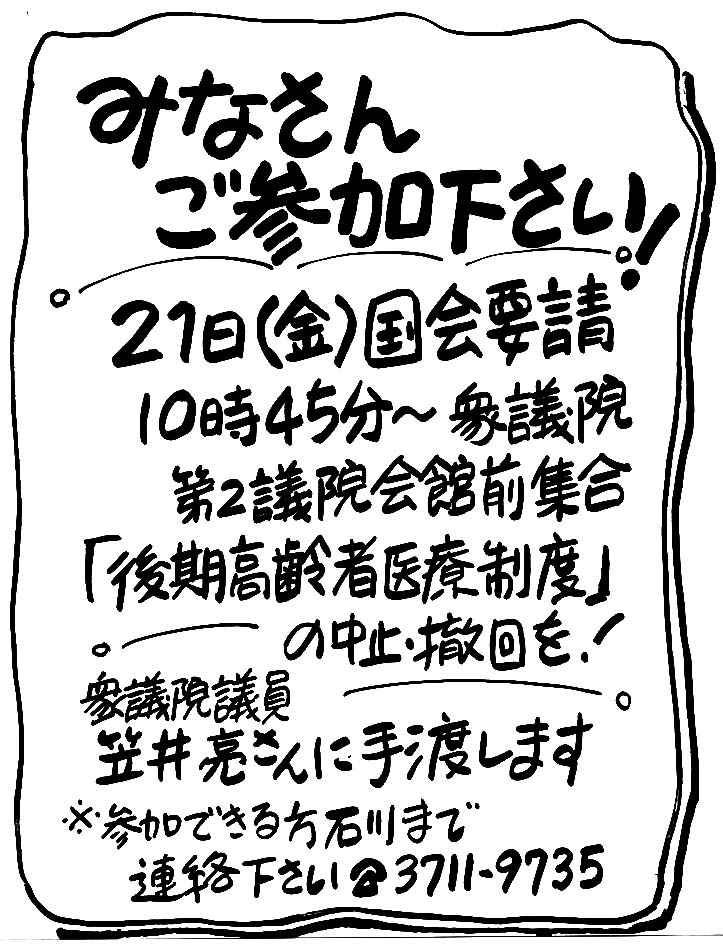 みなさん
ご参加下さい!
21日(金)国会要請
10時45分〜衆議院
第2議院会館前集合
「後期高齢者医療制度」
の中止・撤回を!
衆議院議員
笠井亮さんに手渡します
※参加できる方石川まで
連絡下さい☎3711-9735